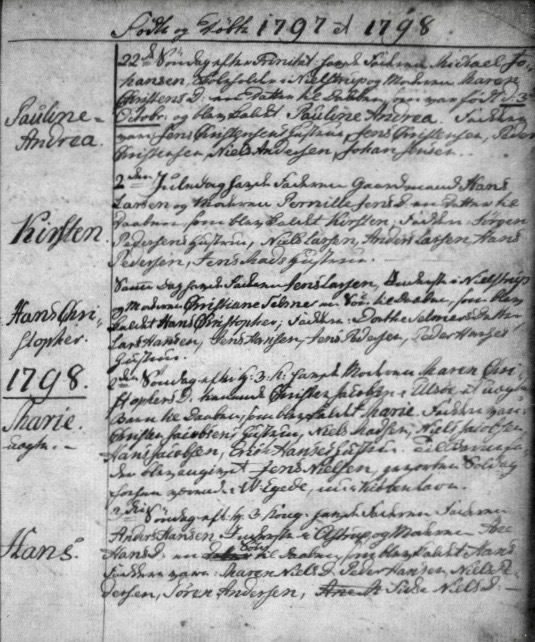 Fødte og Døbte 1797 et 1798
Pauline
Andrea.
22de Søndag efter Trinitat: havde Faderen Michael Jo-
hansen, i Nielstrup og Moderen Maren
Christens D: en Datter til Daaben, som var født d: 3
Octobr: og blev kaldt Pauline Andrea. Fadderne
vare: Jens Christensens Hustrue, Jens Christensen, Peder
Christensen, Niels Andersen, Johan Jensen.
Kirsten.
2den Juledag havde Faderen Gaardmand Hans
Larsen og Moderen Pernille Jens D: en Datter til
Daaben, som blev kaldt Kirsten, Faddere: Jørgen
Pedersens Hustrue, Niels Larsen, Anders Larsen, Hans
Pedersen, Jens Madsens Hustrue.
Hans Chri-
stopher.
Samme Dag havde Faderen Jens Larsen, Inderste i Nielstrup
og Moderen Christiane en Søn til Daaben, som blev
kaldt Hans Christopher, Faddere: Dorthe
Lars Hansen, Jens Hansen, Jens Pedersen, Peder Hanses
Hustrue.
1798.
Marie.
uægte.
2den Søndag efter H: 3 K: havde Moderen Maren Chri-
stophers D: hos Christen Jacobsen i Ulbølle et uægte
Barn til Daaben, som blev kaldt Marie. Fadderne vare:
Christen Jacobsens Hustrue, Niels Madsen, Niels Jacobsen,
Hans Jacobsen, Erik Hanses Hustrue. Til Barnefa-
der blev angivet Jens Nielsen, Soldat
i Kiøbenhavn.
Hans.
3die Søndag eft: H: 3 Kong: havde Faderen
Anders Hansen Inderste i Ølstrup, og Moderen Ane
Hans D: en Søn til Daaben, som blev kaldt Hans
Faddere vare: Maren Niels D: Peder Hansen, Niels Pe-
dersen, Søren Andersen, Sidse Niels D: